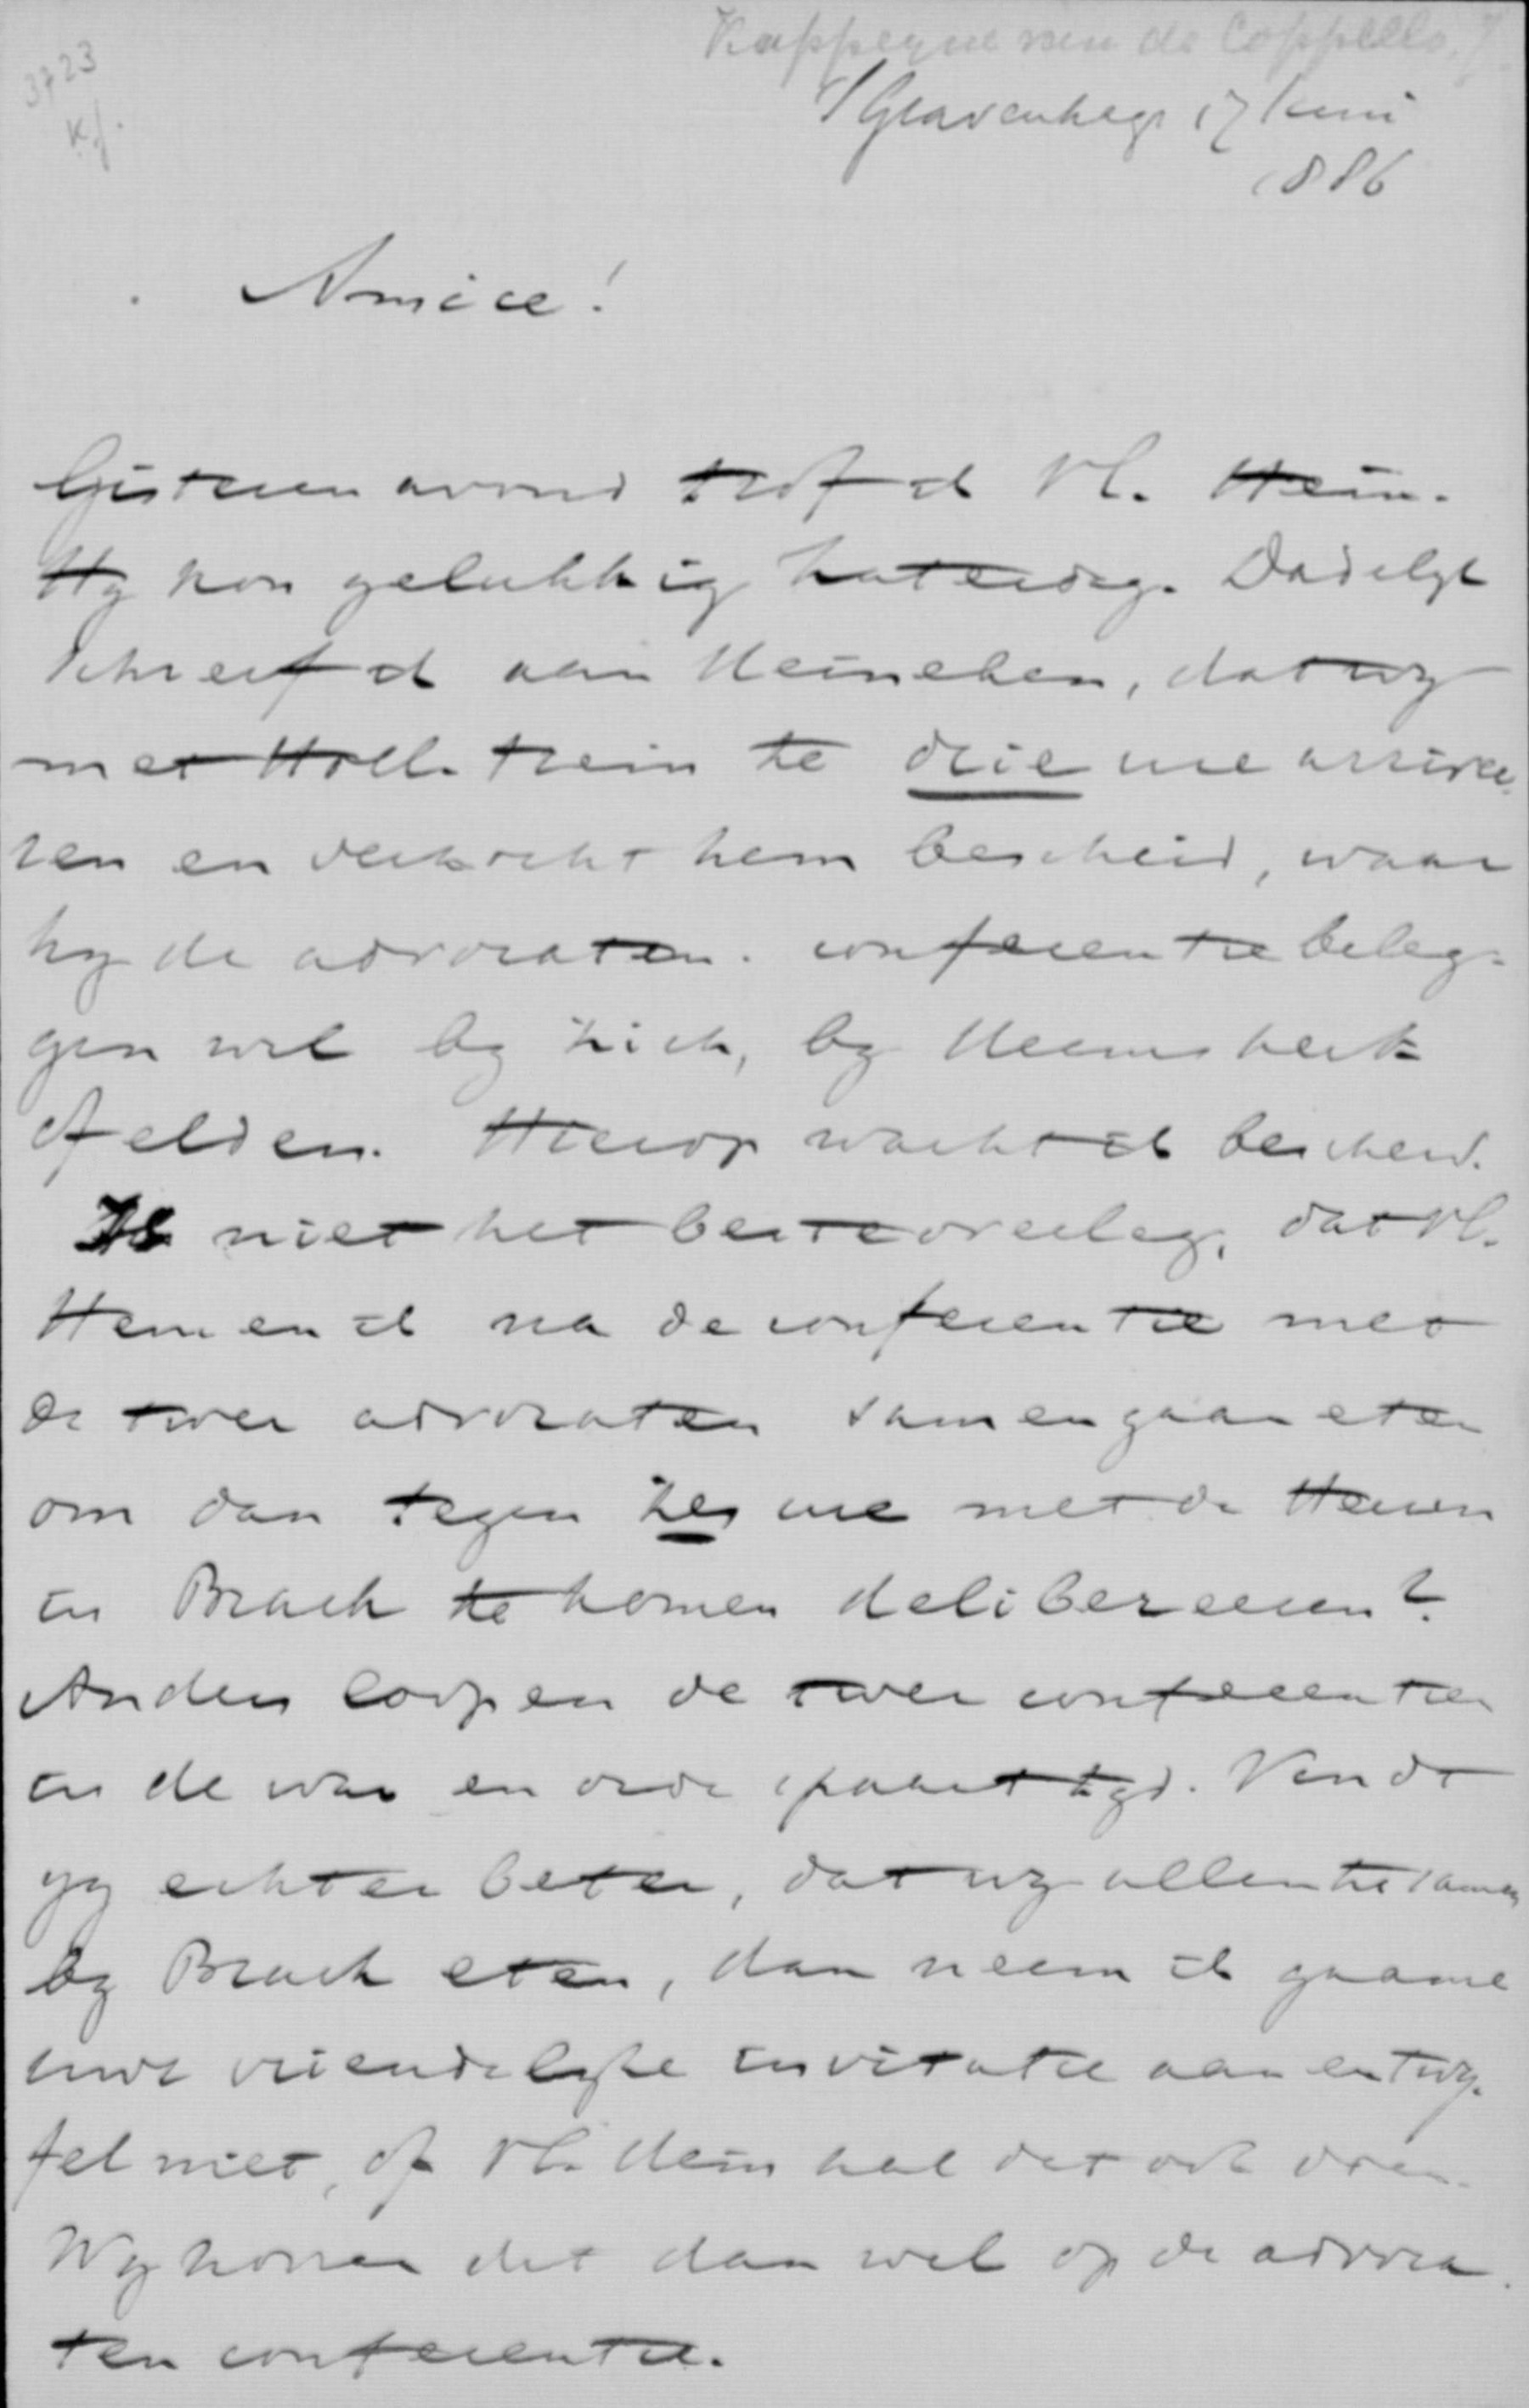 3723
Kj.
Kappeyne van de Coppello, J.
s'Gravenhage 17 Juni
1886
Amice!
Gisteren avond trof ik Vl. Hein.
Hy kon gelukkig Zaterdag. Dadelyk
schreef ik aan Heineken, dat wy
met Holl. trein te drie ure arrivee
ren en verzocht hem bescheid, waar
hy de advocaten-conferentie beleg-
gen wil by zich, by Heemskerk
of elders. Hierop wacht ik bescheid.
Is niet het beste overleg, dat Vl.
Hein en ik na de conferentie met
de twee advocaten samen gaan eten
om dan tegen zes ure met de Heeren
in Brack te komen delibereeren?
Anders loopen de twee conferentien
in de war en orde spaart tyd. Vindt
gy echter beter, dat wy allen te samen
by Brack eten, dan neem ik gaarne
uwe vriendelyke invitatie aan en twy-
fel niet, of Vl. Hein zal dat ook doen.
Wy hooren dit dan wel op de advoca-
ten conferentie.